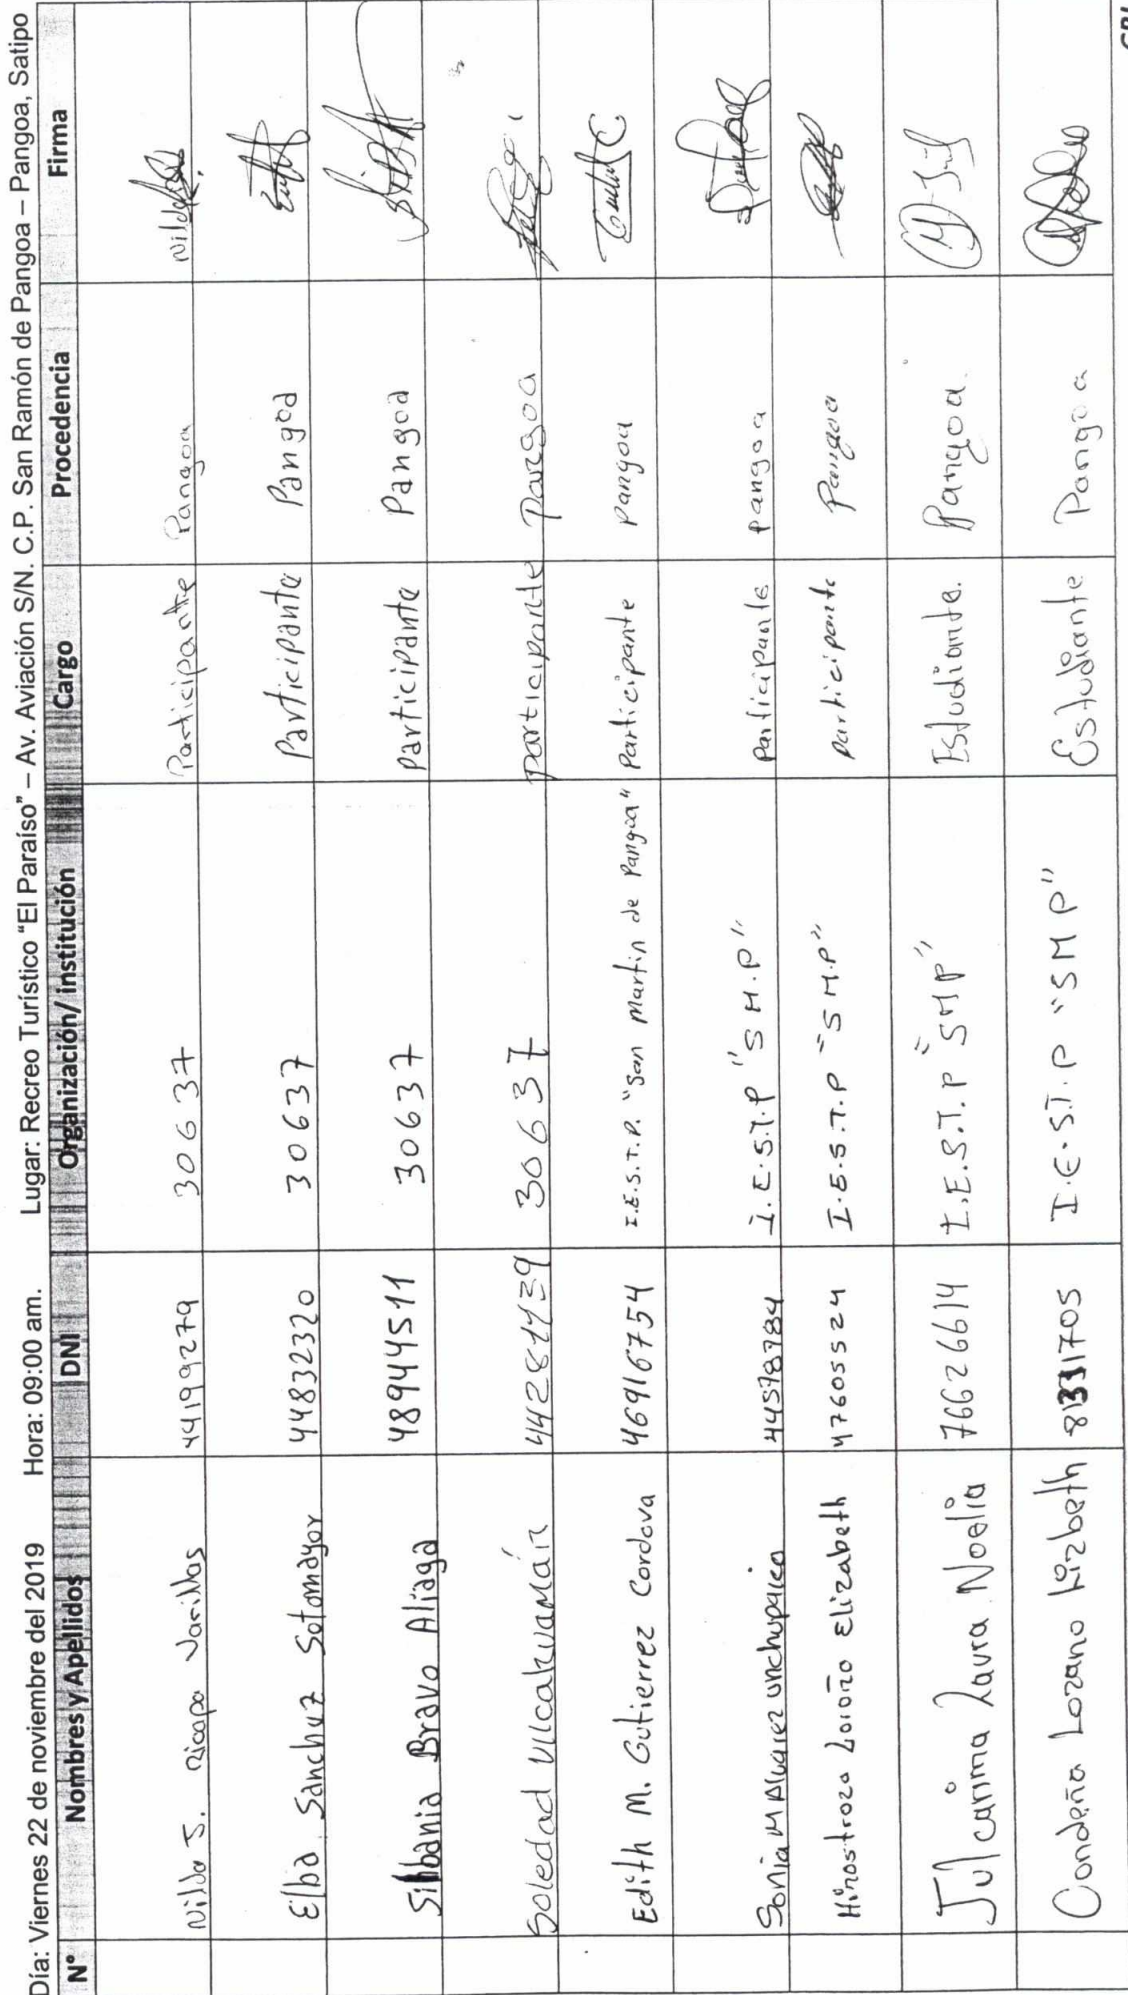 Día: Viernes 22 de noviembre del 2019 Hora: 09:00 am. Lugar: Recreo Turístico "El Paraíso" – Av. Aviación S/N. C.P. San Ramón de Pangoa – Pangoa, Satipo
N° Nombres y Apellidos DNI Organización/ institución Cargo Procedencia Firma
Nilda S. Ricapa Varillas 44199279 30637 Participante Pangoa
Elba Sanchuz Sotomayor 44832320 30637 Participante Pangoa
Silbania Bravo Aliaga 48944511 30637 Participante Pangoa
Soledad Vilcahuamán 30637 participante pangoa
Edith M. Gutierrez Cordova 46916754 I.E.S.T.P. "San Martin de Pangoa" Participante pangoa
Sonia M Alvarez unchupaico 44578784 I.E.S.T.P "S M.P" Participante pangoa
Hinostroza Loroño Elizabeth 47605524 I.E.S.T.P "S M.P" participante Pangoa
Julcarima Laura Noelia 76626614 I.E.S.T.P "SMP" Estudiante. Pangoa.
Condeña Lozano Lizbeth 81331705 I.E.S.T.P "SMP" Estudiante Pangoa